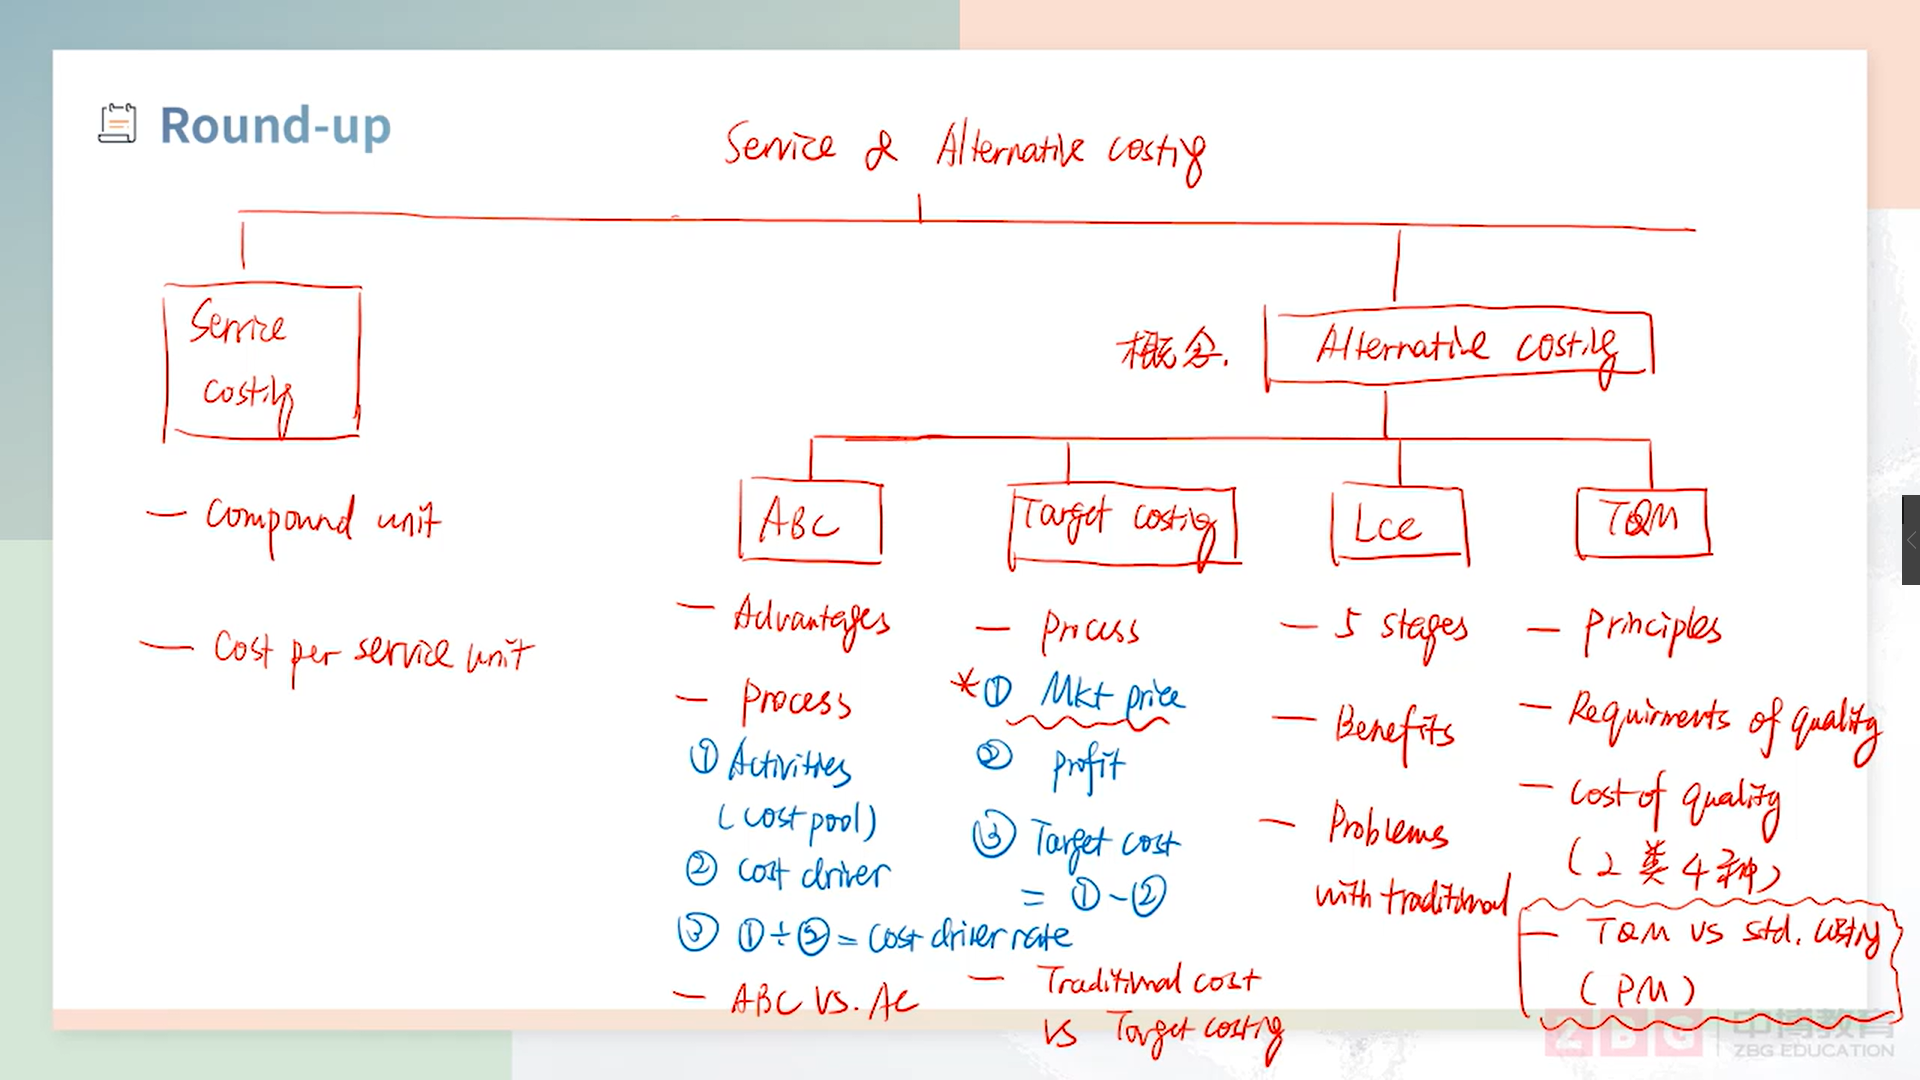 Round-up
Service & Alternative costing
Service
costing
概念.
Alternative costing
— Compound unit
— Cost per service unit
ABC
— Advantages
— Process
① Activities
(cost pool)
② Cost driver
③ ①÷②= cost driver rate
— ABC VS. AC
Target costing
— Process
*① Mkt price
② profit
③ Target cost
= ①-②
— Traditional cost
VS Target costing
Lce
— 5 stages
— Benefits
— Problems
with traditional
TQM
— Principles
— Requirments of quality
— Cost of quality
(2类4种)
— TQM VS std. costing
(PM)
ZBG 中博教育
ZBG EDUCATION